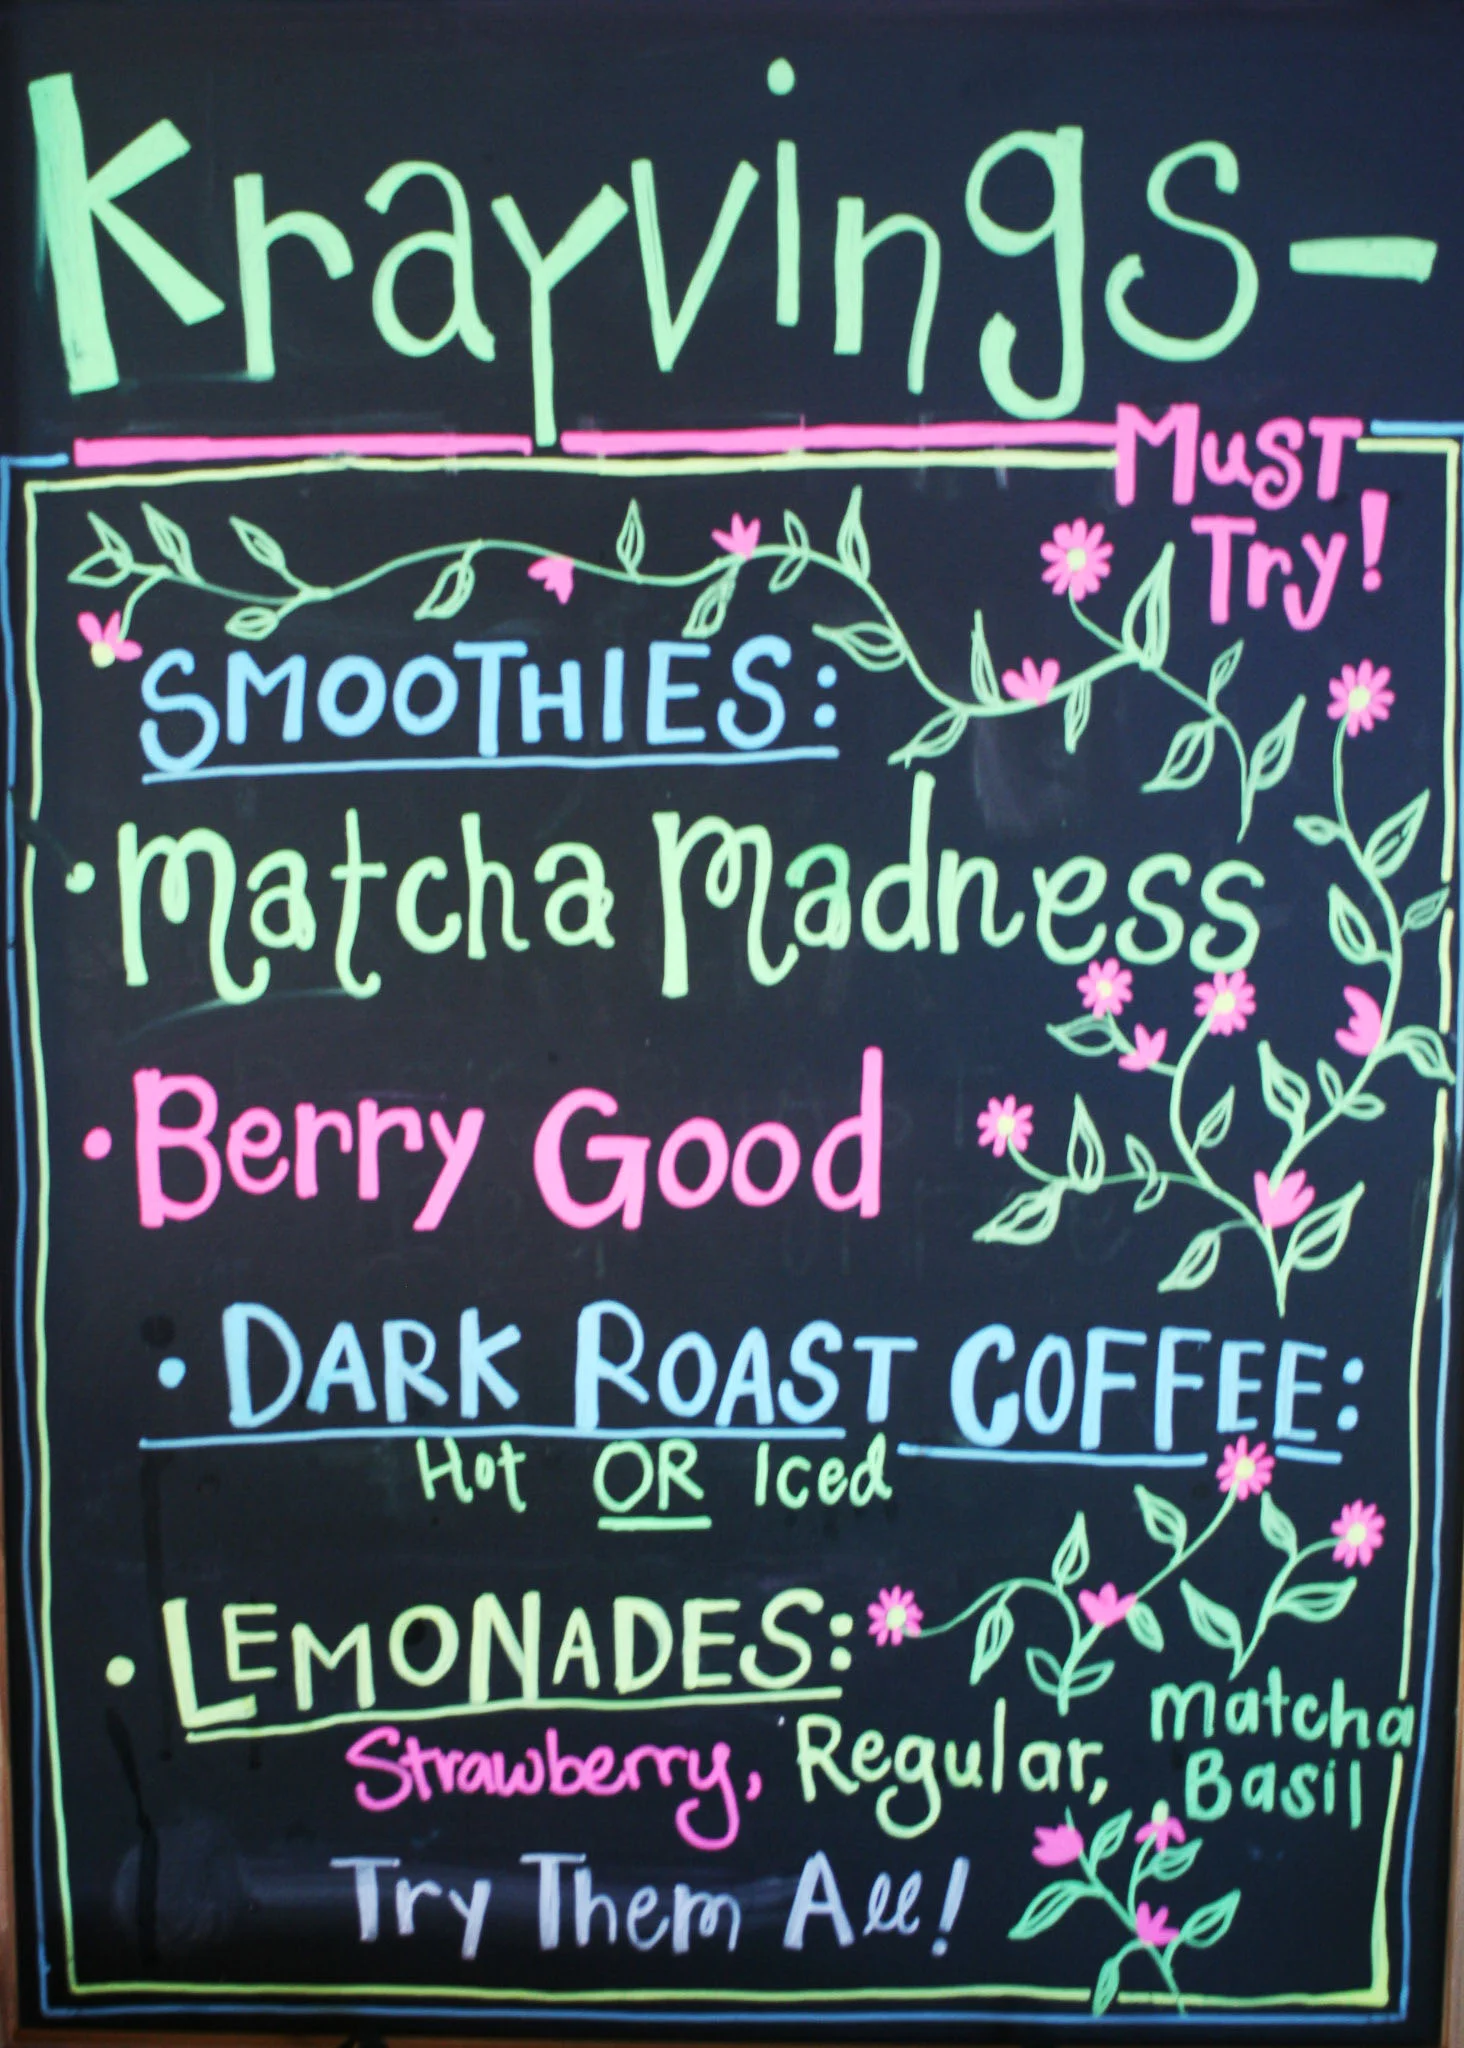 Krayvings-
Must
Try!
SMOOTHIES:
• Matcha Madness
• Berry Good
• DARK ROAST COFFEE:
Hot OR Iced
• LEMONADES:
Strawberry, Regular, Matcha
Basil
Try Them All!